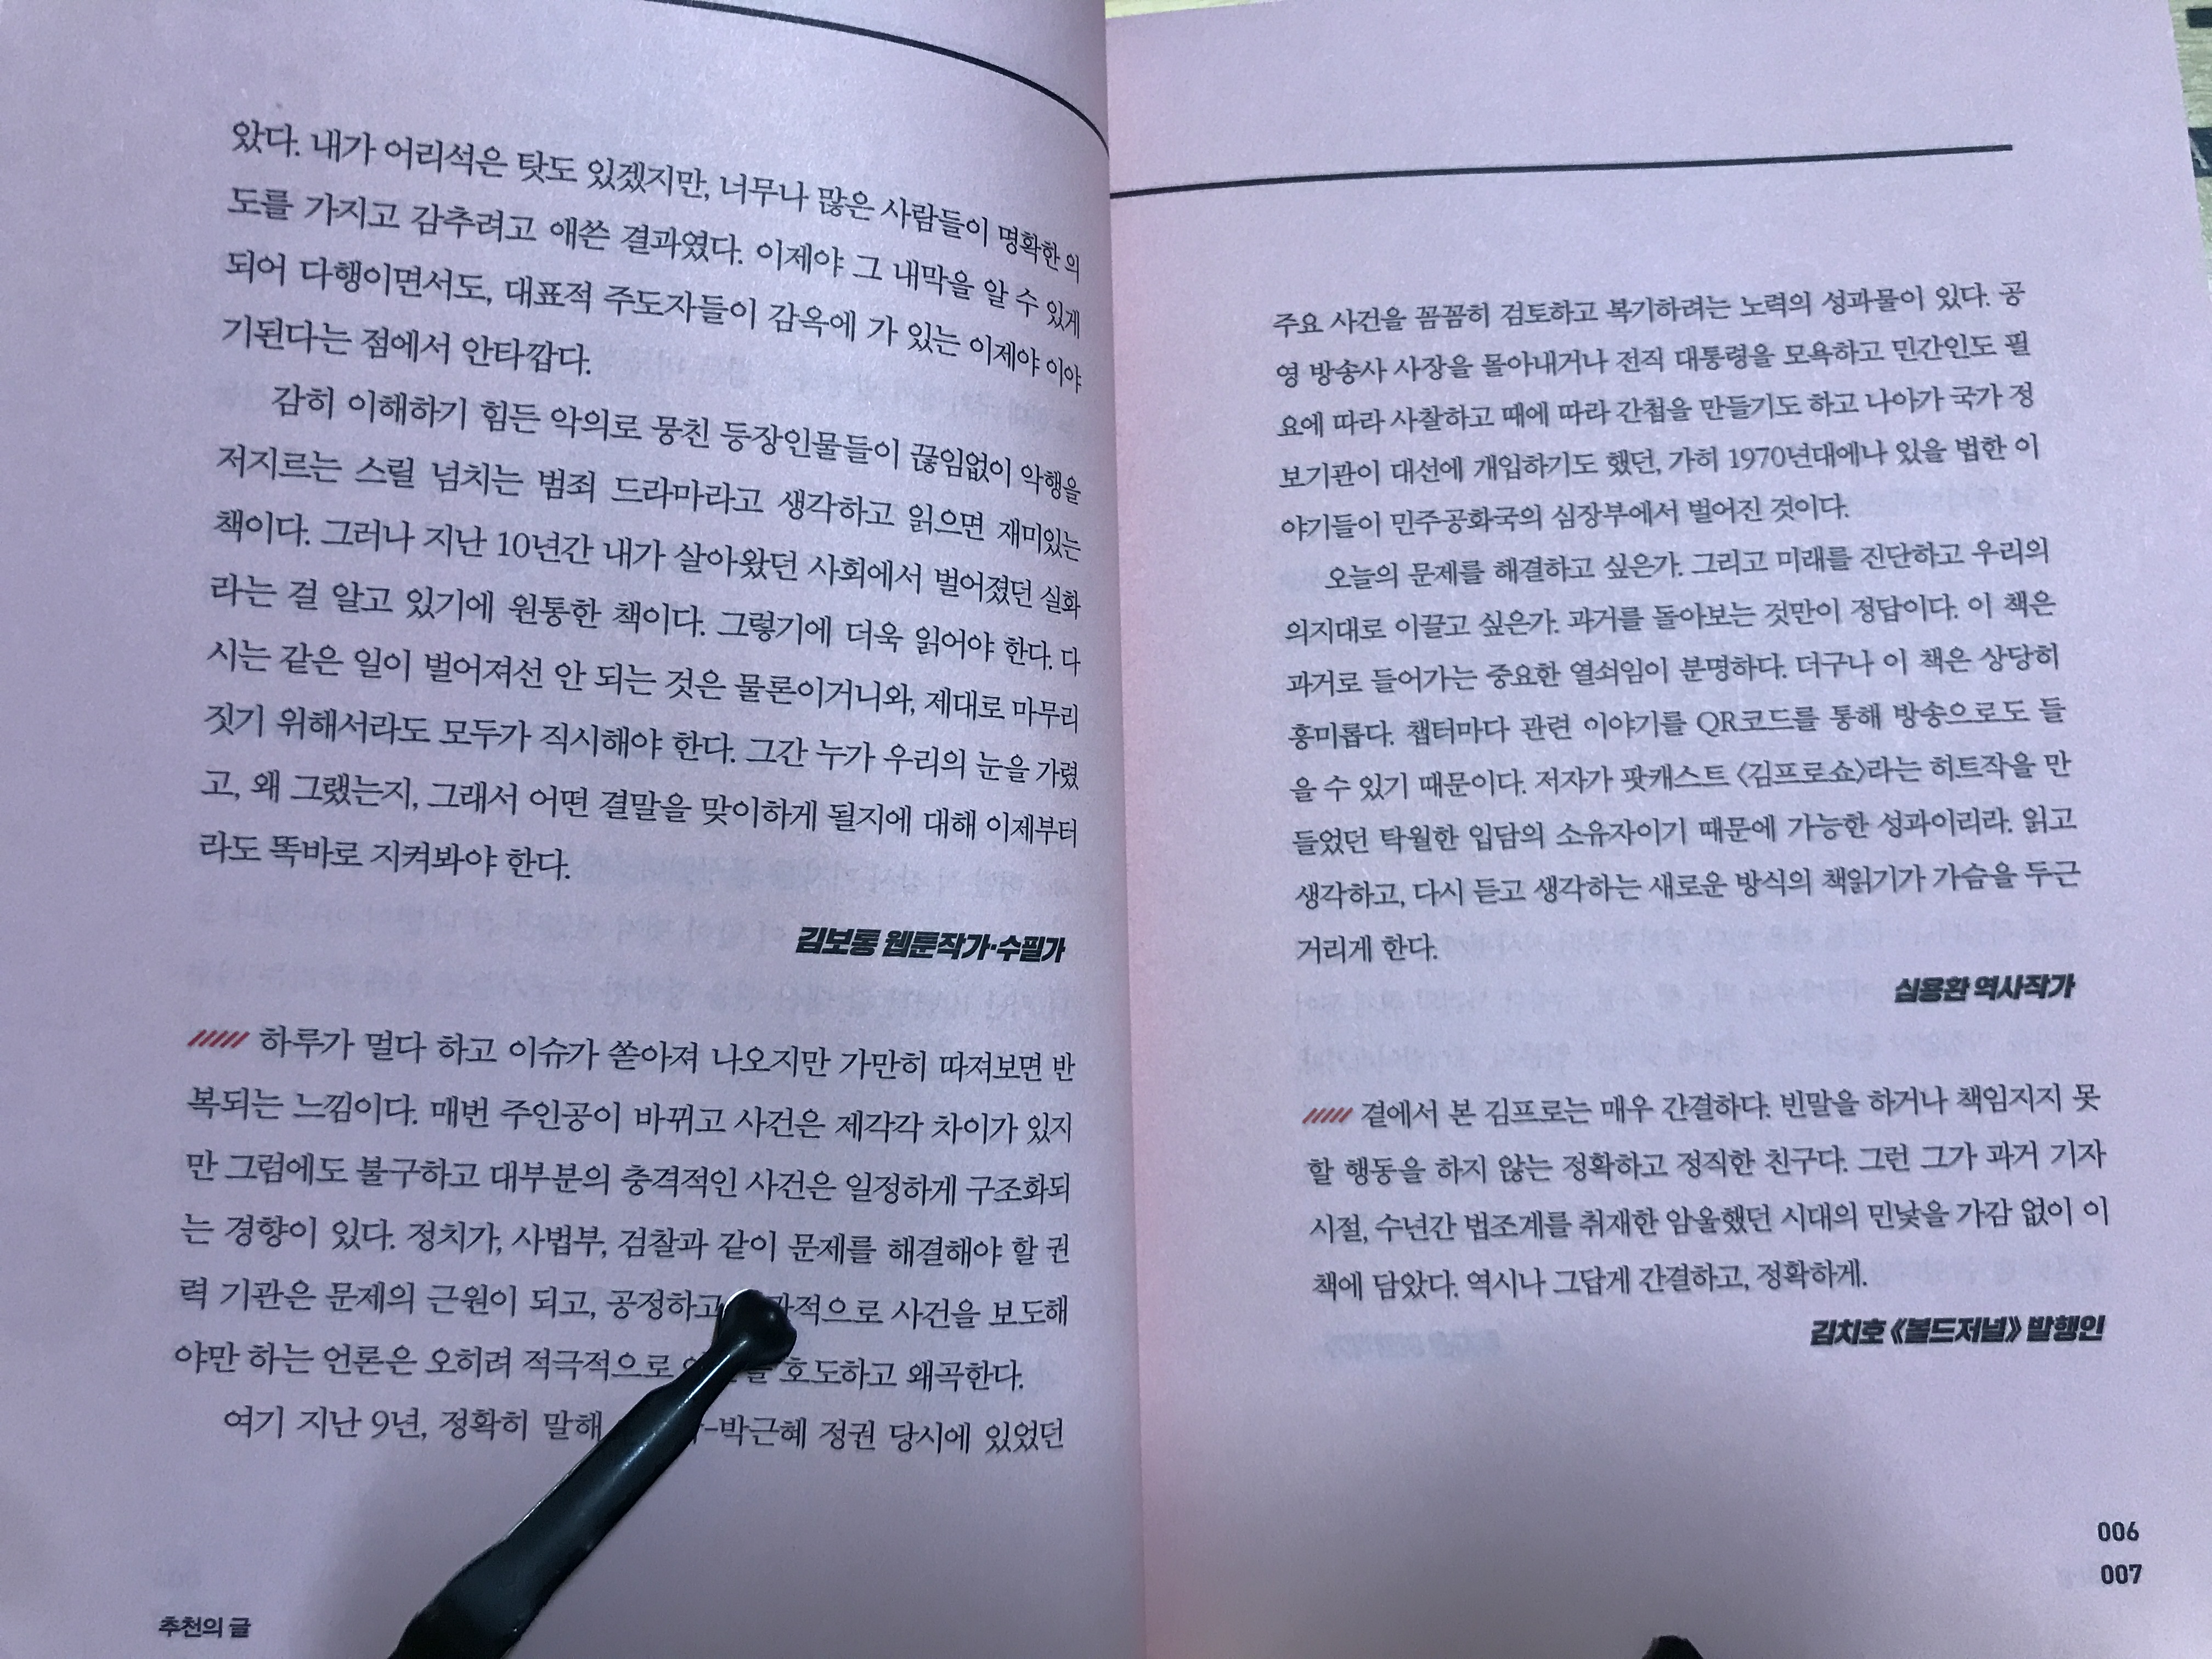 았다. 내가 어리석은 탓도 있겠지만, 너무나 많은 사람들이 명확한 의
도를 가지고 감추려고 애쓴 결과였다. 이제야 그 내막을 알 수 있게
되어 다행이면서도, 대표적 주도자들이 감옥에 가 있는 이제야 이야
기된다는 점에서 안타깝다.
감히 이해하기 힘든 악의로 뭉친 등장인물들이 끊임없이 악행을
저지르는 스릴 넘치는 범죄 드라마라고 생각하고 읽으면 재미있는
책이다. 그러나 지난 10년간 내가 살아왔던 사회에서 벌어졌던 실화
라는 걸 알고 있기에 원통한 책이다. 그렇기에 더욱 읽어야 한다. 다
시는 같은 일이 벌어져선 안 되는 것은 물론이거니와, 제대로 마무리
짓기 위해서라도 모두가 직시해야 한다. 그간 누가 우리의 눈을 가렸
고, 왜 그랬는지, 그래서 어떤 결말을 맞이하게 될지에 대해 이제부터
라도 똑바로 지켜봐야 한다.
김보통 웹툰작가·수필가
하루가 멀다 하고 이슈가 쏟아져 나오지만 가만히 따져보면 반
복되는 느낌이다. 매번 주인공이 바뀌고 사건은 제각각 차이가 있지
만 그럼에도 불구하고 대부분의 충격적인 사건은 일정하게 구조화되
는 경향이 있다. 정치가, 사법부, 검찰과 같이 문제를 해결해야 할 권
력 기관은 문제의 근원이 되고, 공정하고 사건을 보도해
야만 하는 언론은 오히려 적극적으로 호도하고 왜곡한다.
여기 지난 9년, 정확히 말해 -박근혜 정권 당시에 있었던
추천의 글
주요 사건을 꼼꼼히 검토하고 복기하려는 노력의 성과물이 있다. 공
영 방송사 사장을 몰아내거나 전직 대통령을 모욕하고 민간인도 필
요에 따라 사찰하고 때에 따라 간첩을 만들기도 하고 나아가 국가 정
보기관이 대선에 개입하기도 했던, 가히 1970년대에나 있을 법한 이
야기들이 민주공화국의 심장부에서 벌어진 것이다.
오늘의 문제를 해결하고 싶은가. 그리고 미래를 진단하고 우리의
의지대로 이끌고 싶은가. 과거를 돌아보는 것만이 정답이다. 이 책은
과거로 들어가는 중요한 열쇠임이 분명하다. 더구나 이 책은 상당히
흥미롭다. 챕터마다 관련 이야기를 QR코드를 통해 방송으로도 들
을 수 있기 때문이다. 저자가 팟캐스트 〈김프로쇼〉라는 히트작을 만
들었던 탁월한 입담의 소유자이기 때문에 가능한 성과이리라. 읽고
생각하고, 다시 듣고 생각하는 새로운 방식의 책읽기가 가슴을 두근
거리게 한다.
심용환 역사작가
곁에서 본 김프로는 매우 간결하다. 빈말을 하거나 책임지지 못
할 행동을 하지 않는 정확하고 정직한 친구다. 그런 그가 과거 기자
시절, 수년간 법조계를 취재한 암울했던 시대의 민낯을 가감 없이 이
책에 담았다. 역시나 그답게 간결하고, 정확하게.
김치호 《볼드저널》 발행인
006
007